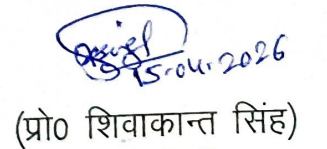 15.04.2026
(प्रो0 शिवाकान्त सिंह)